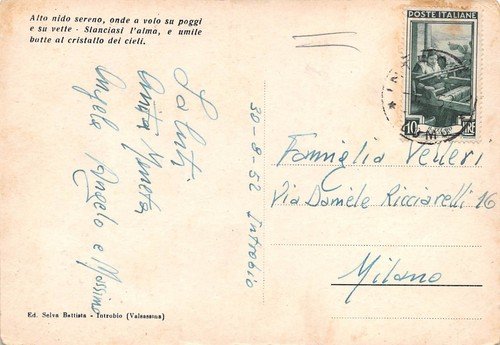 Alto nido sereno, onde a volo su poggi
e su vette - Slanciasi l'alma, e umile
batte al cristallo dei cieli.
Saluti
Anita
Angela Angelo e Massimo
30-8-52 Introbio
POSTE ITALIANE
10 LIRE
Famiglia Velleri
Via Daniele Ricciarelli 16
Milano
Ed. Selva Battista - Introbio (Valsassina)